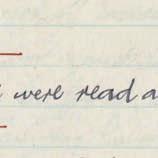 were read a